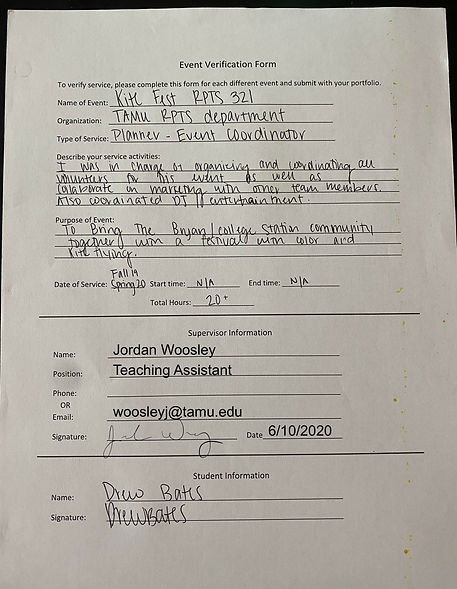 Event Verification Form
To verify service, please complete this form for each different event and submit with your portfolio.
Name of Event: Kite Fest RPTS 321
Organization: TAMU RPTS department
Type of Service: Planner - Event Coordinator
Describe your service activities:
I was in charge of organizing and coordinating all
volunteers for this event as well as
collaborate on marketing with other team members.
Also coordinated DJ // entertainment.
Purpose of Event:
To Bring The Bryan/college Station community
together with a festival with color and
kite flying.
Fall 19
Date of Service: Spring 20 Start time: N/A End time: N/A
Total Hours: 20+
Supervisor Information
Name: Jordan Woosley
Position: Teaching Assistant
Phone:
OR
Email: woosleyj@tamu.edu
Signature: Date 6/10/2020
Student Information
Name: Drew Bates
Signature: Drew Bates